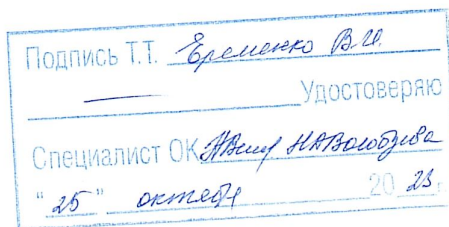 Подпись Т.Т. Еременко В.И.
Удостоверяю
Специалист ОК
"25" октября 2023г.